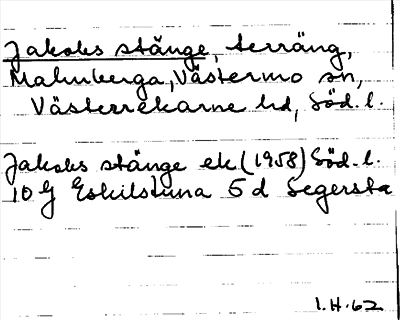 Jakobs stänge, terräng,
Malmberga, Västermo sn,
Västerrekarne hd, Söd. l.
Jakobs stänge ek (1958) Söd. l.
10 G Eskilstuna 5 d Segersta
I.H. 62